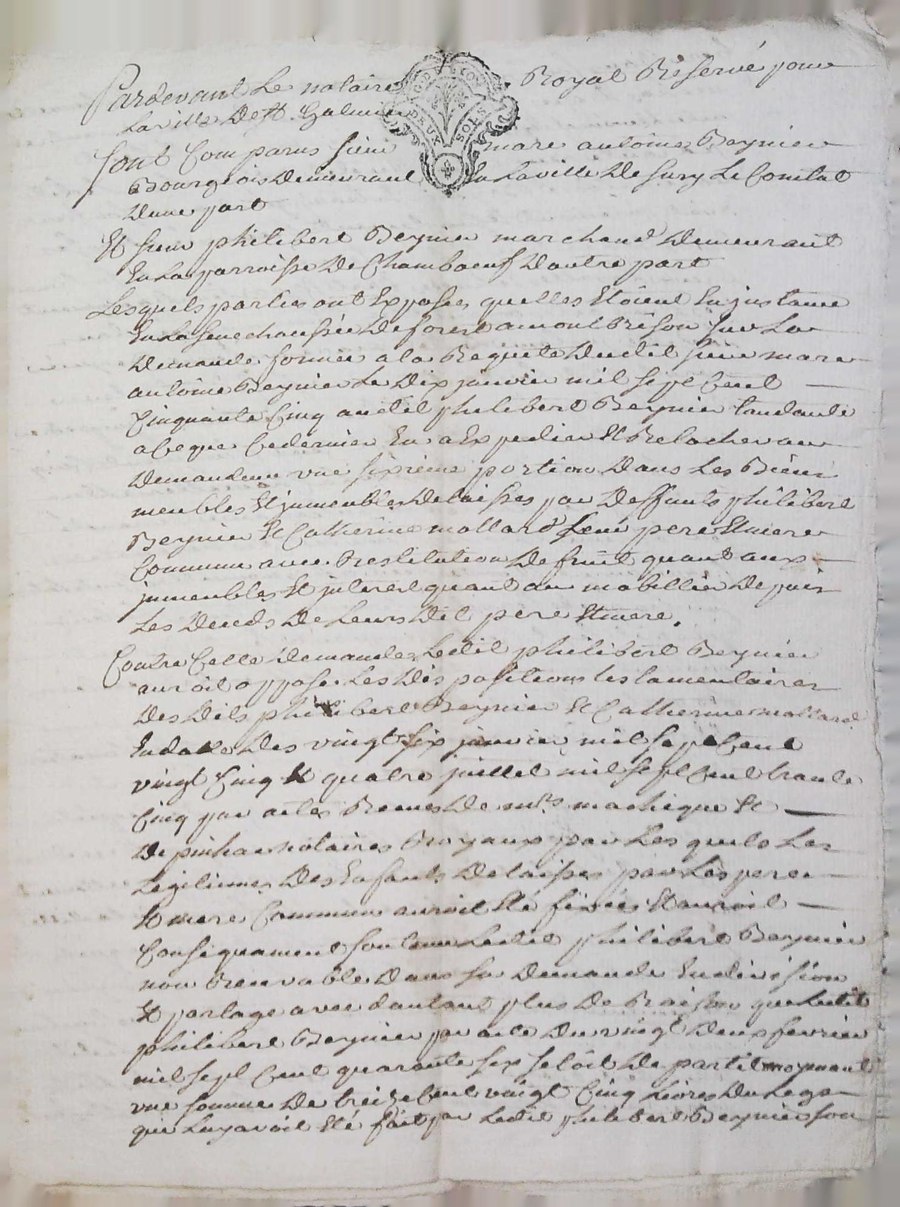 Pardevant Le notaire Royal Reservé pour
La ville De St Galmier
Sont Comparus sieur marc antoine Beynier
Bourgeois Demeurant En La ville De Sury Le Comtat
D'une part
Et sieur philibert Beynier marchand Demeurant
En La parroisse De Chambœuf D'autre part
Lesquels parties ont Exposés quelles Etoient En jnstance
En La senechaussée De forest a montbrison sur La
Demande formée a la Requete Dudit sieur marc
antoine Beynier Le Dix janvier mil sept Cent
Cinquante Cinq audit philibert Beynier tandante
a Ceque Cedernier Eu a Expedier Et Relacher au
Demandeur une sixieme portion Dans Les Biens
meubles Et jmmeubles Delaissés par Deffunts philibert
Beynier Et Catherine mollard Leur pere Et mere
Commune avec Restitution De fruit quant aux
jmmeubles Et jnterest quant au mobillier Depuis
Les Deceds De Leurs Dit pere Et mere.
Contre Cette Demande Ledit philibert Beynier
auroit opposé Les Dispositions testamentaires
Des Dits philibert Beynier Et Catherine mollard
En datte Des vingt six janvier mil sept Cent
vingt Cinq Et quatre juillet mil sept Cent trante
Cinq par actes Recus De mrs machique Et
Depinhac notaires Royaux par Les quels Les
Legitimes Des Enfants Delaissés par Les pere
Et mere Communs auroit Eté fixées Et auroit
Consequament soutenu Ledit philibert Beynier
non Recevable Dans sa Demande En division
Et partage avec dautant plus De Raison que Ledit
philibert Beynier par acte Du vingt Deux fevrier
mil sept Cent quarante six setoit De partit moyenant
une somme De treize Cent vingt Cinq Livres Du Legs
que Luy avoit Eté fait par Ledit philibert Beynier son
DEUX SOLS